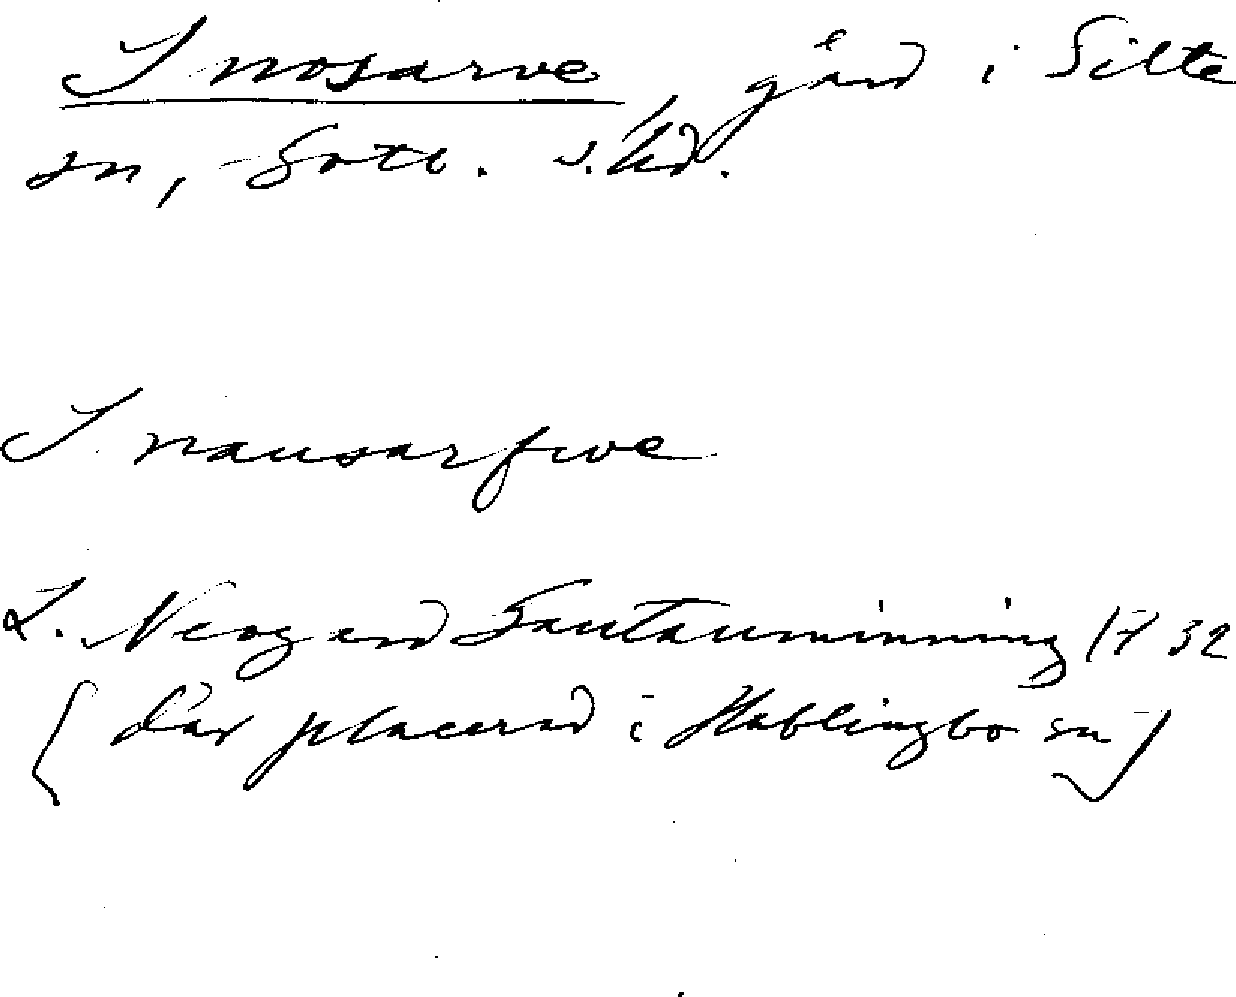 Snosarve, gård i Silte
sn, Gotl. s. hd.
Snausarfwe
L. Neogard Gautauminning 1732
[där placerad i Hablingbo sn]